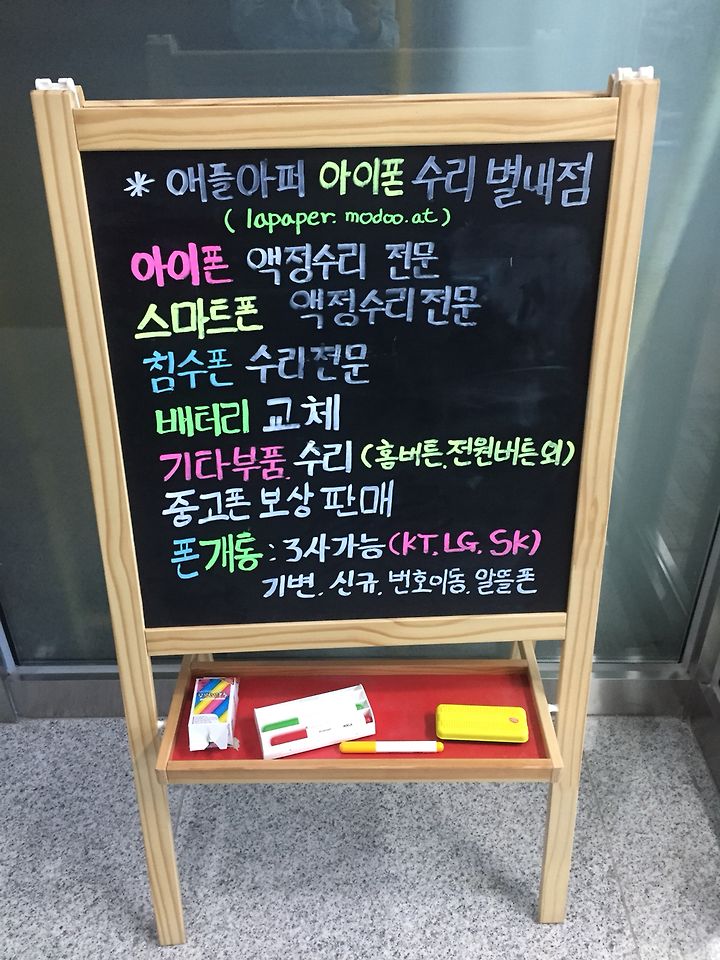 * 애플아퍼 아이폰 수리 별내점
( lapaper. modoo.at )
아이폰 액정수리 전문
스마트폰 액정수리 전문
침수폰 수리전문
배터리 교체
기타부품. 수리 (홈버튼.전원버튼 외)
중고폰 보상 판매
폰개통 : 3사가능 (KT. LG. SK)
기변. 신규. 번호이동. 알뜰폰